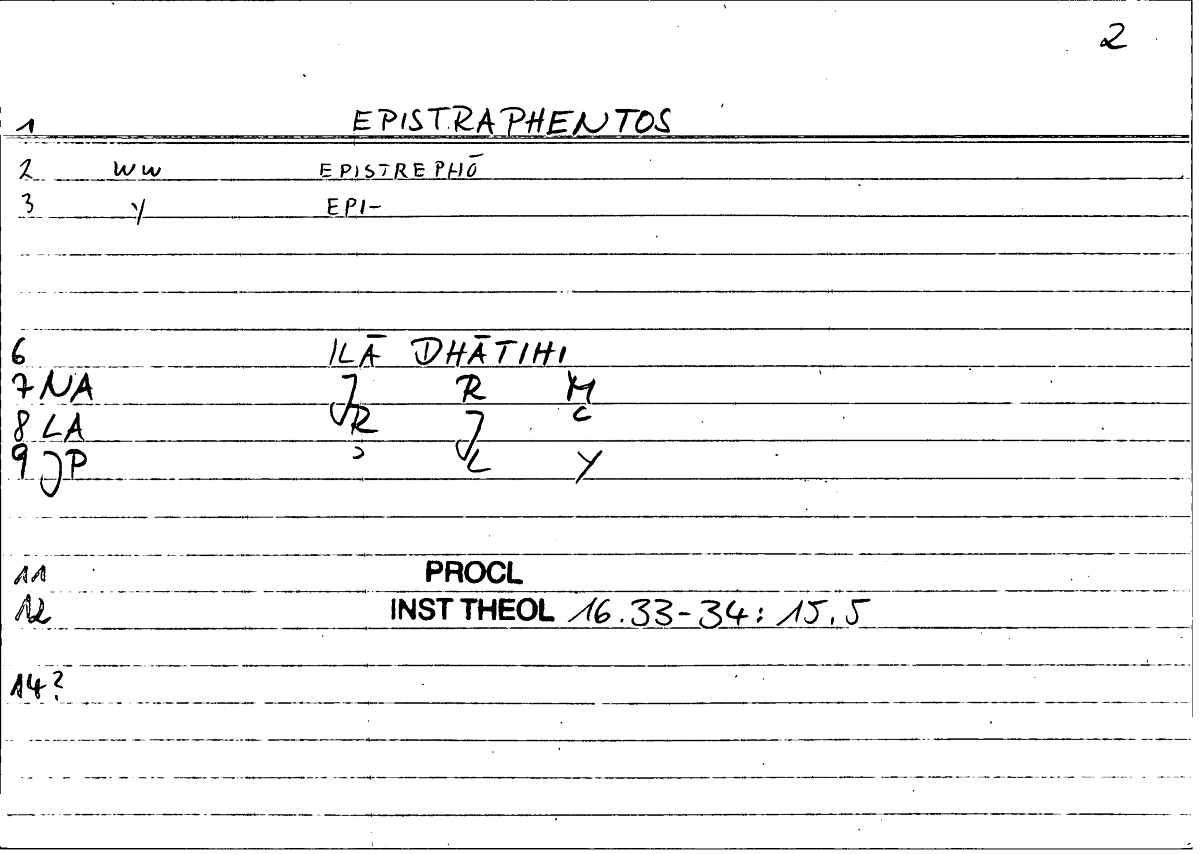 2
1 EPISTRAPHENTOS
2 WW EPISTREPHŌ
3 Y EPI-
6 ILĀ DHĀTIHI
7 NA J R M
8 LA R J C
9 JP L Y
11 PROCL
12 INST THEOL 16.33-34: 15.5
14?